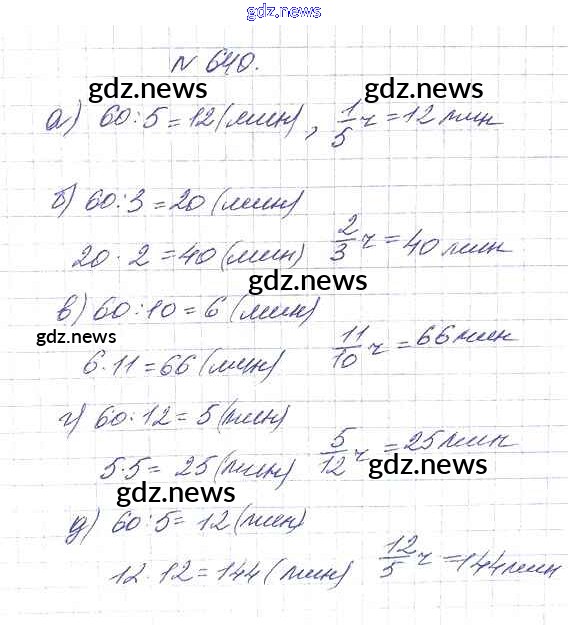 gdz.news
№ 640.
gdz.news gdz.news
а) 60:5=12(мин), 1/5 ч=12 мин
б) 60:3=20(мин)
20·2=40(мин) 2/3 ч=40 мин
gdz.news
в) 60:10=6(мин)
gdz.news
6·11=66(мин) 11/10 ч=66 мин
г) 60:12=5(мин)
5·5=25(мин) 5/12 ч=25 мин
gdz.news gdz.news
д) 60:5=12(мин)
12·12=144(мин) 12/5 ч=144 мин